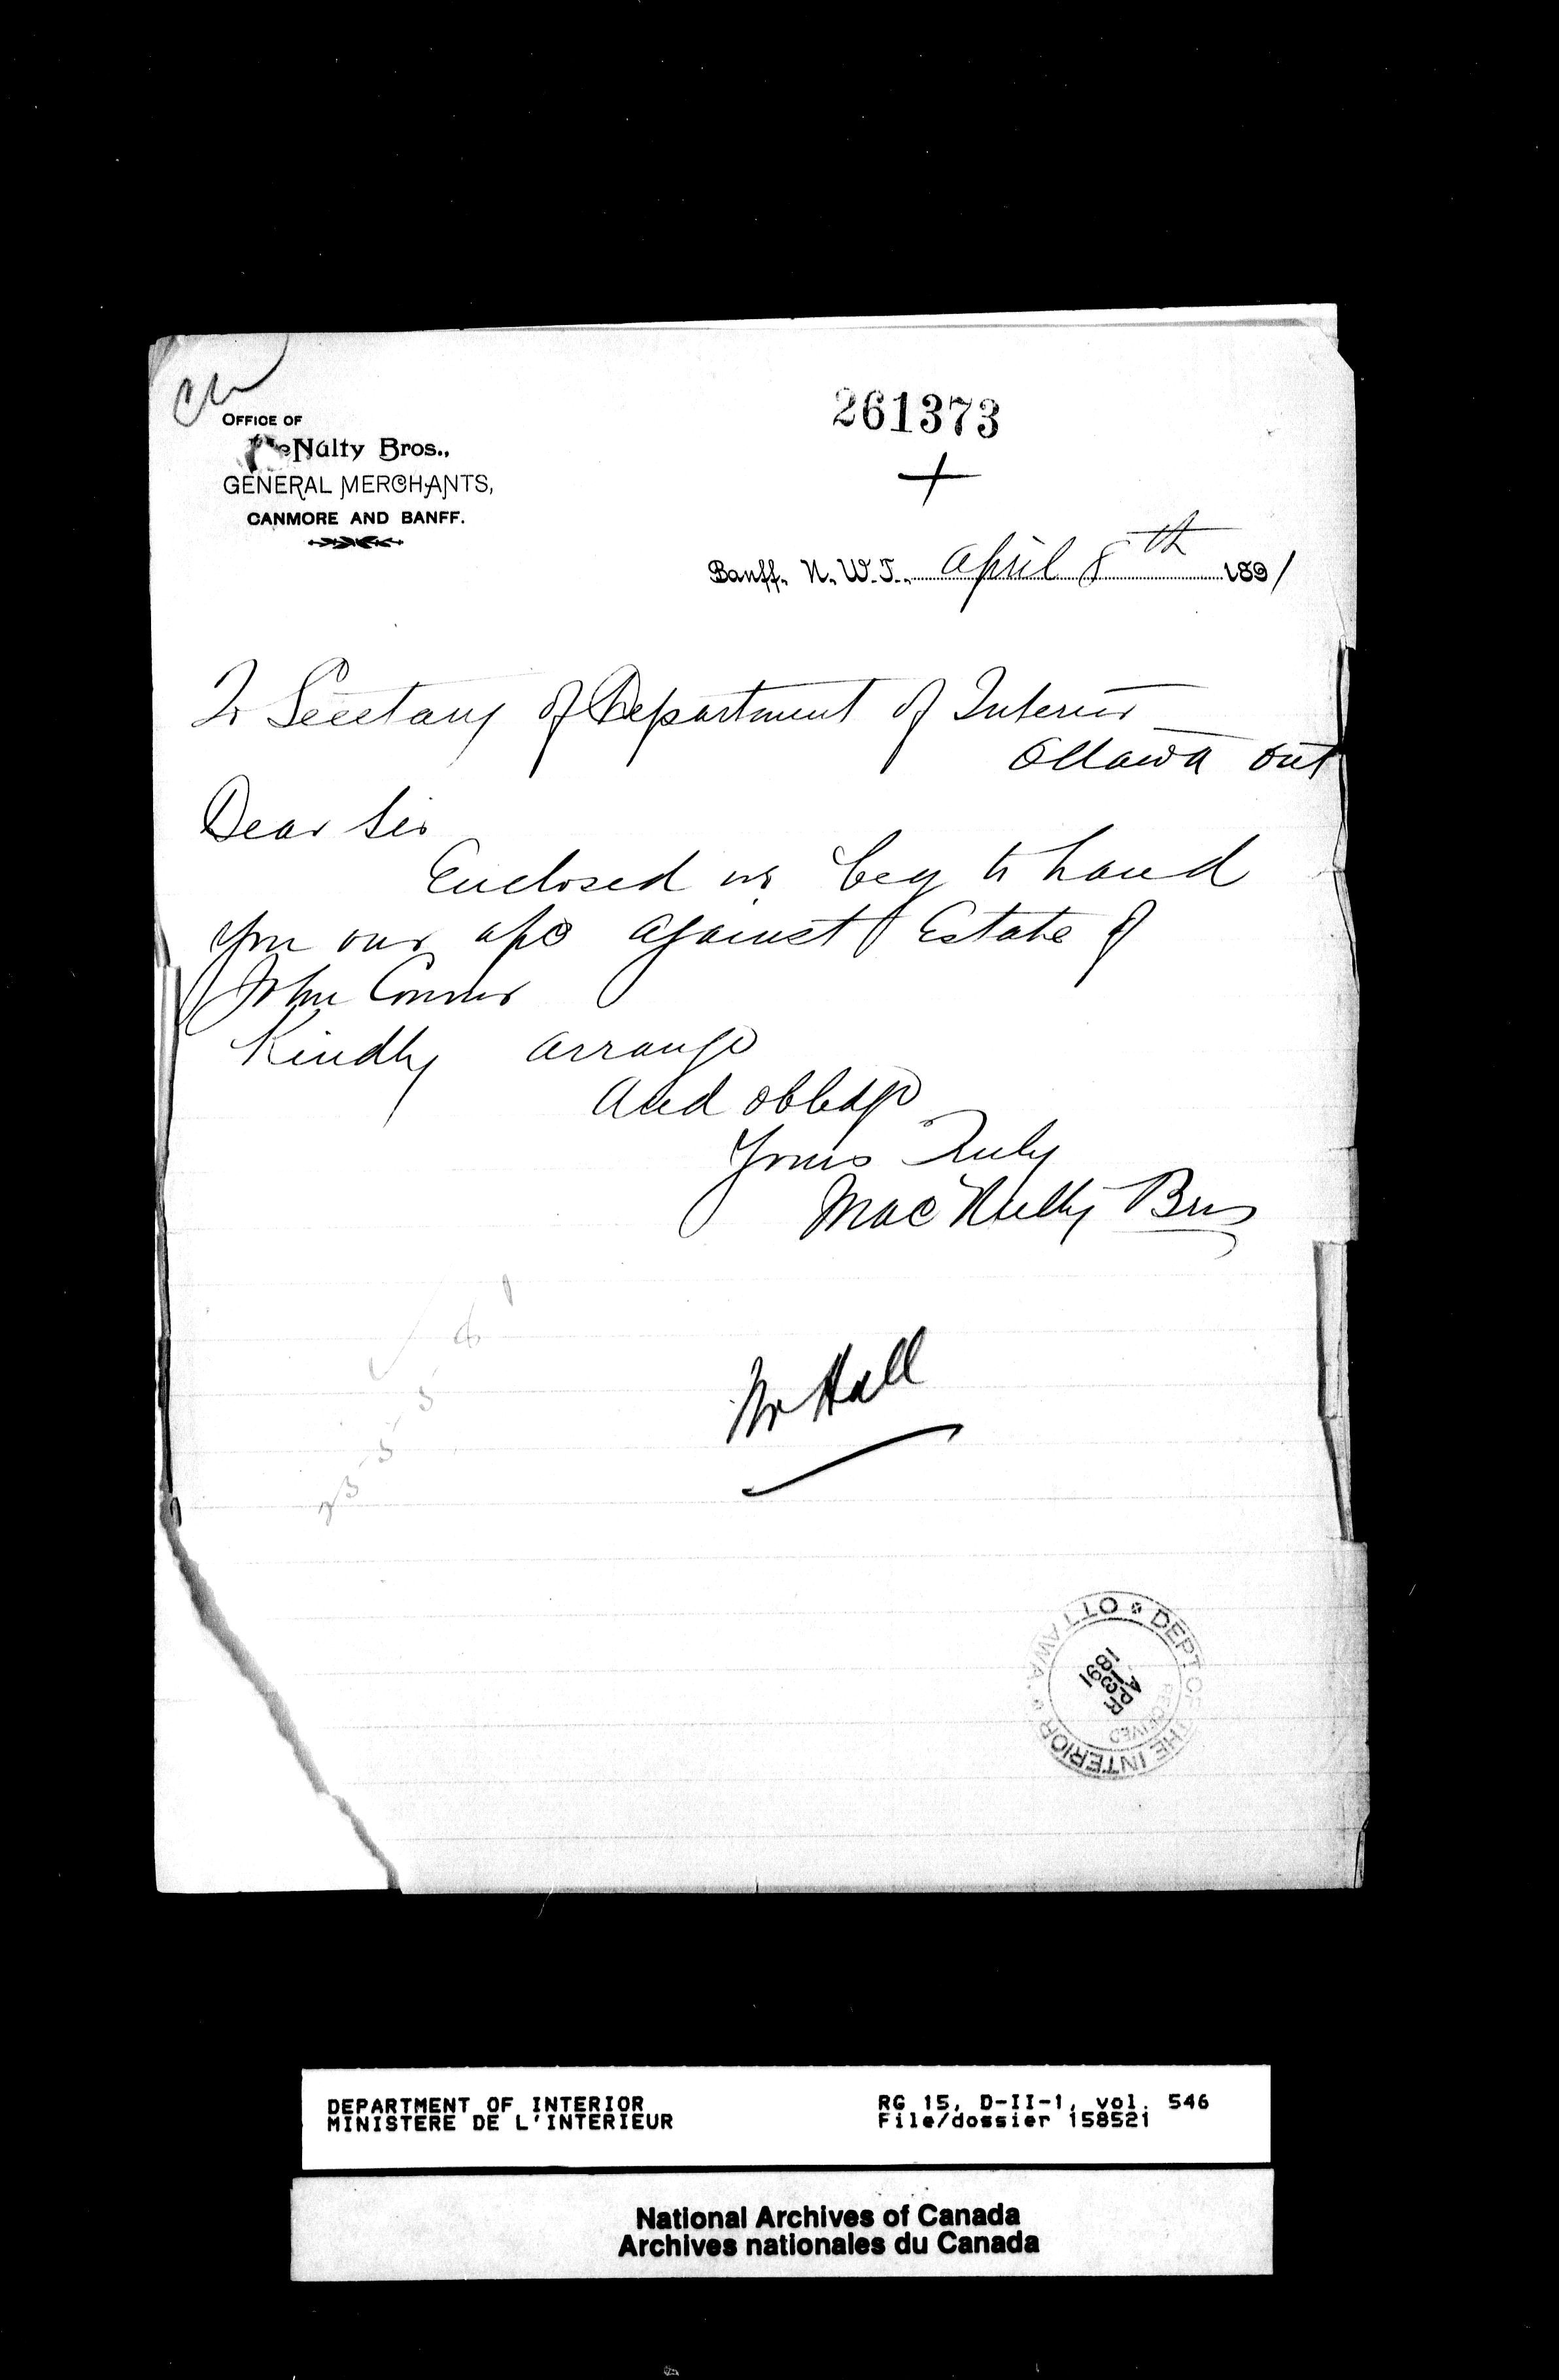 OFFICE OF
Nulty Bros.,
GENERAL MERCHANTS,
CANMORE AND BANFF.
261373
+
Banff, N. W. T., April 8th 1891
To Secetary of Department of Interior
Ottawa Ont
Dear Sir
Enclosed we beg to hand
you our a/c against Estate of
John Connor
Kindly arrange
And obledge
Yours Truly
MacNulty Bros
Mr Hall
DEPT OF THE INTERIOR OTTAWA.
RECEIVED
APR
13
1891
DEPARTMENT OF INTERIOR
MINISTERE DE L'INTERIEUR
RG 15, D-II-1, vol. 546
File/dossier 158521
National Archives of Canada
Archives nationales du Canada